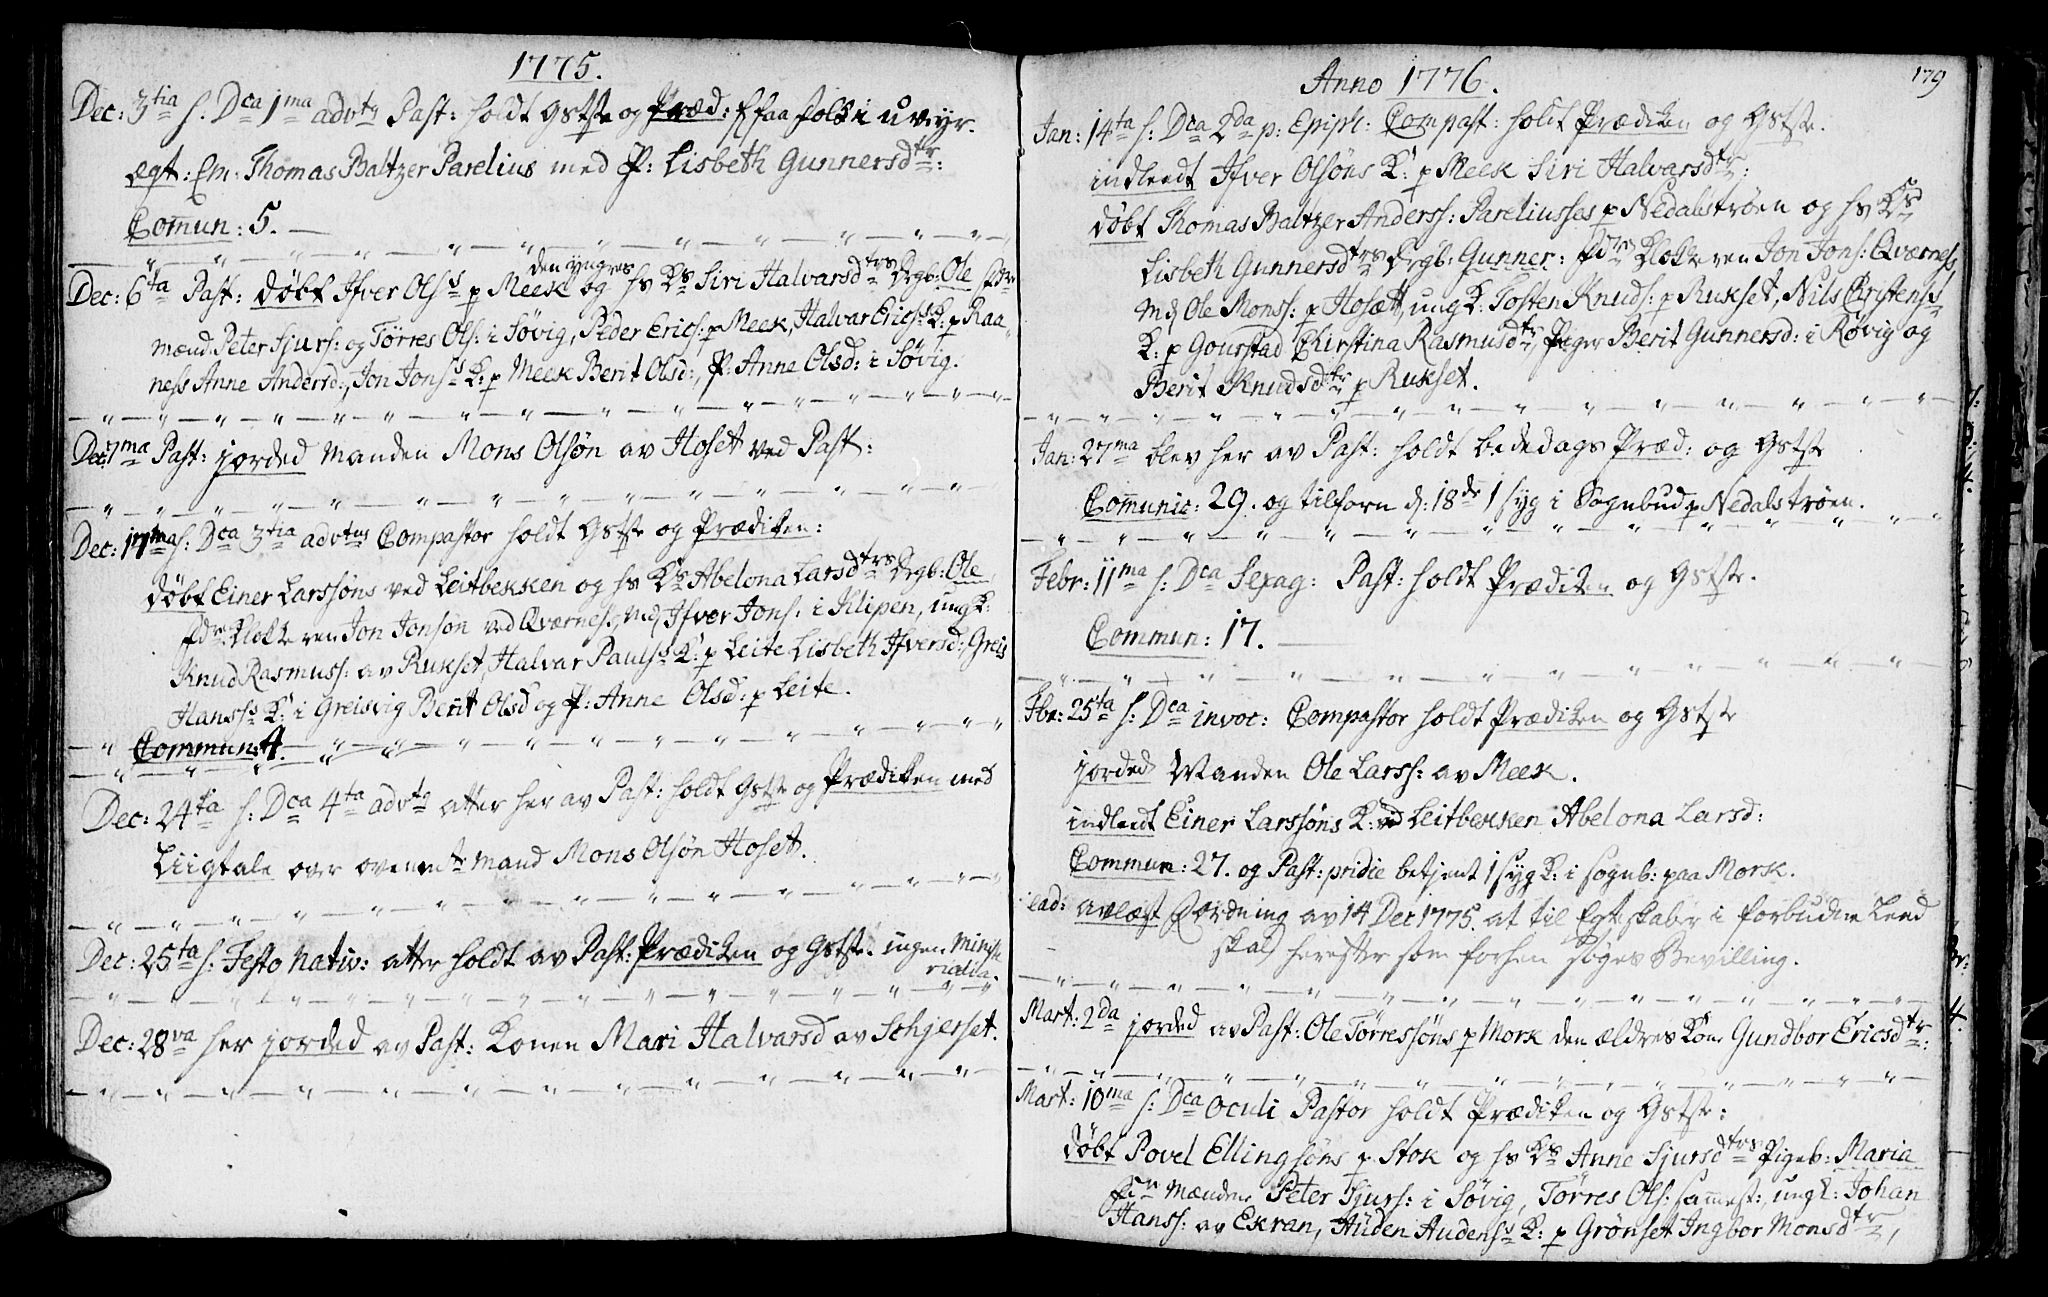 1775.
Dec: 3tia s: Dca 1ma advts Past: holdt Gstste og Præd: f faa folk i uveyr.
Egt: Em: Thomas Baltzer Parelius med P: Lisbeth Gunnersdtr:
Comun: 5.
den yngres
Dec: 6ta Past: døbt Ifver Olss p Meek og hs Ks Siri Halvarsdtrs Drgb: Ole fdre
mænd. Peter Sjurs: og Tørres Ols: i Søvig, Peder Erics: p Meek, Halvar Ericss K: p Raa-
ness Anne Andersd:, Jon Jonss K: p Meek Berit Olsd:, P: Anne Olsd: i Søvig.
Dec: 7ma Past: jorded Manden Mons Olsøn av Hoset ved Past:
Dec: 17ma s: Dca 3tia advtus Compastor holdt Gstste og Prædiken:
døbt Einer Larssøns ved Leitbekken og hs Ks Abelona Larsdtrs Drgb: Ole
fdre Klokkeren Jon Jonsøn ved Qværnes, Md Ifver Jons: i Klipen, ung K:
Knud Rasmuss: av Rukset, Halvar Paulss K: p Leite Lisbeth Ifversd:, Greis
Hanss K: i Greisvig Berit Olsd og P: Anne Olsd: p Leite.
Commun: 4.
Dec: 24ta s: Dca 4ta advts atter her av Past: holdt Gstste og Prædiken med
Liigtale over ovennte mand Mons Olsøn Hoset.
Dec: 25ta s: Festo Nativ: atter holdt av Past: Prædiken og Gstste. ingen Ministe
rialia.
Dec: 28va her jorded av Past: Konen Mari Halvarsd av Schjerset.
179
Anno 1776.
Jan: 14ta s: Dca 2da p: Epiph: Compast: holdt Prædiken og Gstste.
indleedt Ifver Olsøns K: p Meek Siri Halvarsdtr:
døbt Thomas Baltzer Anderss: Pareliusses p Nedalstrøen og hs Ks
Lisbeth Gunnersdtrs Drgb: Gunner: fdre Klokkeren Jon Jons: Qvernes,
Md Ole Monss: p Hosætt, ung K: Tosten Knuds: p Rukset, Nils Christenss
K: p Gourstad Chirstina Rasmusdtr, Piger Berit Gunnersd: i Røvig og
Berit Knudsdtr p Rukset.
Jan: 27ma blev her av Past: holdt bededags Præd: og Gstste
Comunic: 29. og tilforn d: 18de 1 syg i Sognbud p Nedalstrøen.
Febr: 11ma s: Dca Sexag: Past: holdt Prædiken og Gstste.
Commun: 17.
Fbr: 25ta s: Dca invoc: Compastor holdt Prædiken og Gstste
jorded Manden Ole Larss: av Meek.
indleedt Einer Larssøns K: ved Leitbekken Abelona Larsd:
Commun: 27. og Past: pridie betjent 1 syg K: i sognb: paa Mork.
ead: avlæst Fordning av 14 Dec 1775. at til Egteskaber i forbudne Leed
skal herefter som forhen søges Bevilling.
Mart: 2da jorded av Past: Ole Tørressøns p Mork den ældres Kone Gundbor Ericsdtr:
Mart: 10ma s: Dca Oculi Pastor holdt Prædiken og Gstste:
døbt Povel Ellingsøns p Stok og hs Ks Anne Sjursdtrs Pigeb: Maria
fdre Mændene Peter Sjurs: i Søvig, Tørres Ols: samest:, ung k: Johan
Hanss: av Ekran, Auden Audenss K: p Grønset Ingbor Monsdtr,